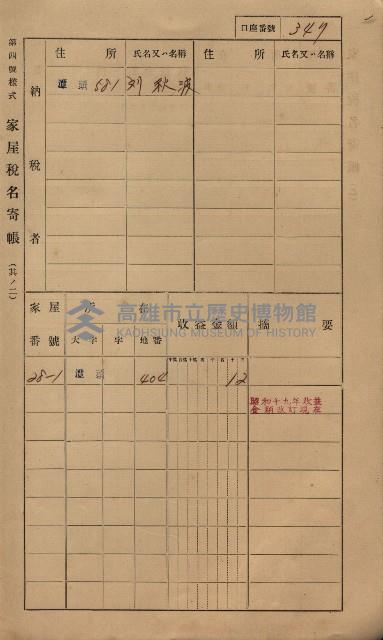 口座番號 349
第四號樣式 家屋稅名寄帳 (其ノ二)
納稅者
住所 氏名又ハ名稱 住所 氏名又ハ名稱
潭頭 581 刘秋波
家屋番號 所在 收益金額 摘要
大字 字 地番
28-1 潭頭 404 12
昭和十九年收益
金額改訂現在
高雄市立歷史博物館
KAOHSIUNG MUSEUM OF HISTORY